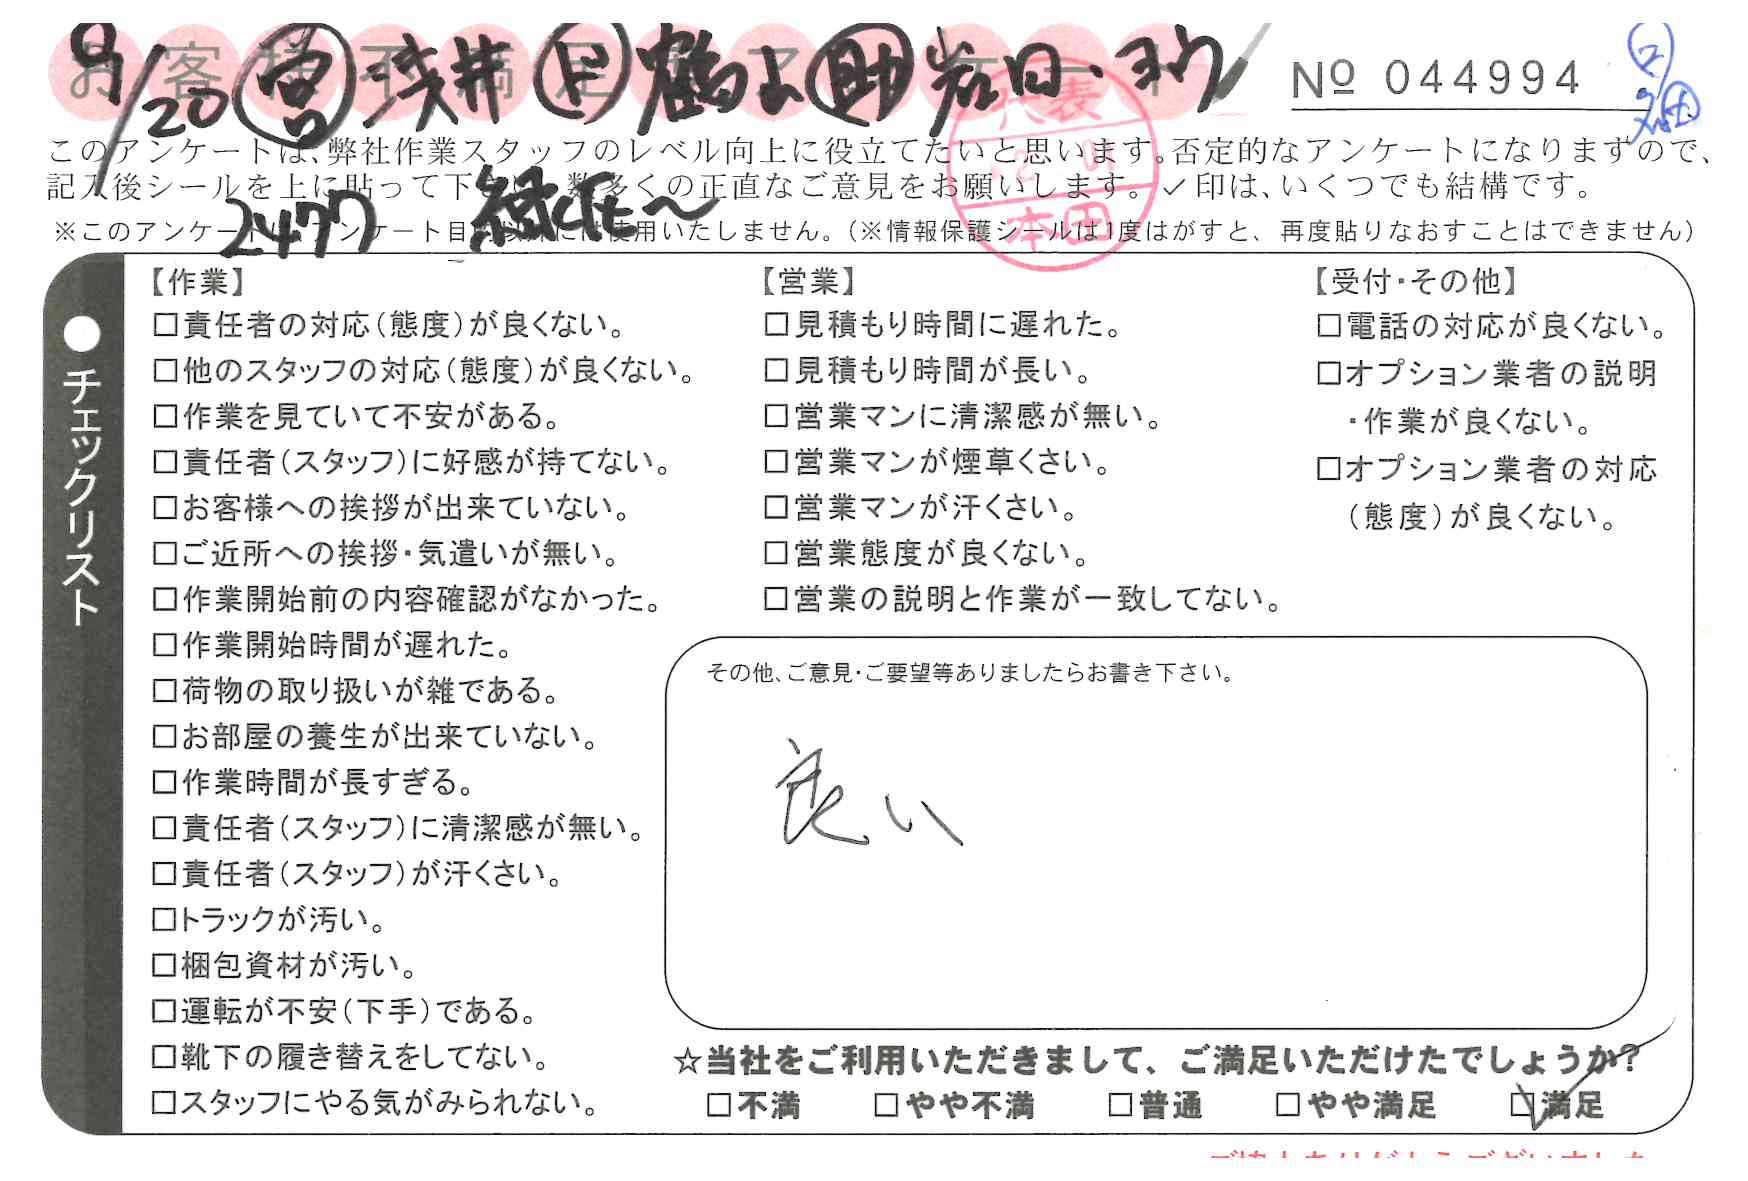 9/20 営 浅井 助
No 044994
このアンケートは、弊社作業スタッフのレベル向上に役立てたいと思います。否定的なアンケートになりますので、
記入後シールを上に貼って下さい。数多くの正直なご意見をお願いします。✓印は、いくつでも結構です。
2477
※このアンケートはアンケート目的以外には使用いたしません。(※情報保護シールは1度はがすと、再度貼りなおすことはできません)
代表
本田
●チェックリスト
【作業】
□責任者の対応(態度)が良くない。
□他のスタッフの対応(態度)が良くない。
□作業を見ていて不安がある。
□責任者(スタッフ)に好感が持てない。
□お客様への挨拶が出来ていない。
□ご近所への挨拶・気遣いが無い。
□作業開始前の内容確認がなかった。
□作業開始時間が遅れた。
□荷物の取り扱いが雑である。
□お部屋の養生が出来ていない。
□作業時間が長すぎる。
□責任者(スタッフ)に清潔感が無い。
□責任者(スタッフ)が汗くさい。
□トラックが汚い。
□梱包資材が汚い。
□運転が不安(下手)である。
□靴下の履き替えをしてない。
□スタッフにやる気がみられない。
【営業】
□見積もり時間に遅れた。
□見積もり時間が長い。
□営業マンに清潔感が無い。
□営業マンが煙草くさい。
□営業マンが汗くさい。
□営業態度が良くない。
□営業の説明と作業が一致してない。
【受付・その他】
□電話の対応が良くない。
□オプション業者の説明
・作業が良くない。
□オプション業者の対応
(態度)が良くない。
その他、ご意見・ご要望等ありましたらお書き下さい。
良い
☆当社をご利用いただきまして、ご満足いただけたでしょうか?
□不満 □やや不満 □普通 □やや満足 ☑満足